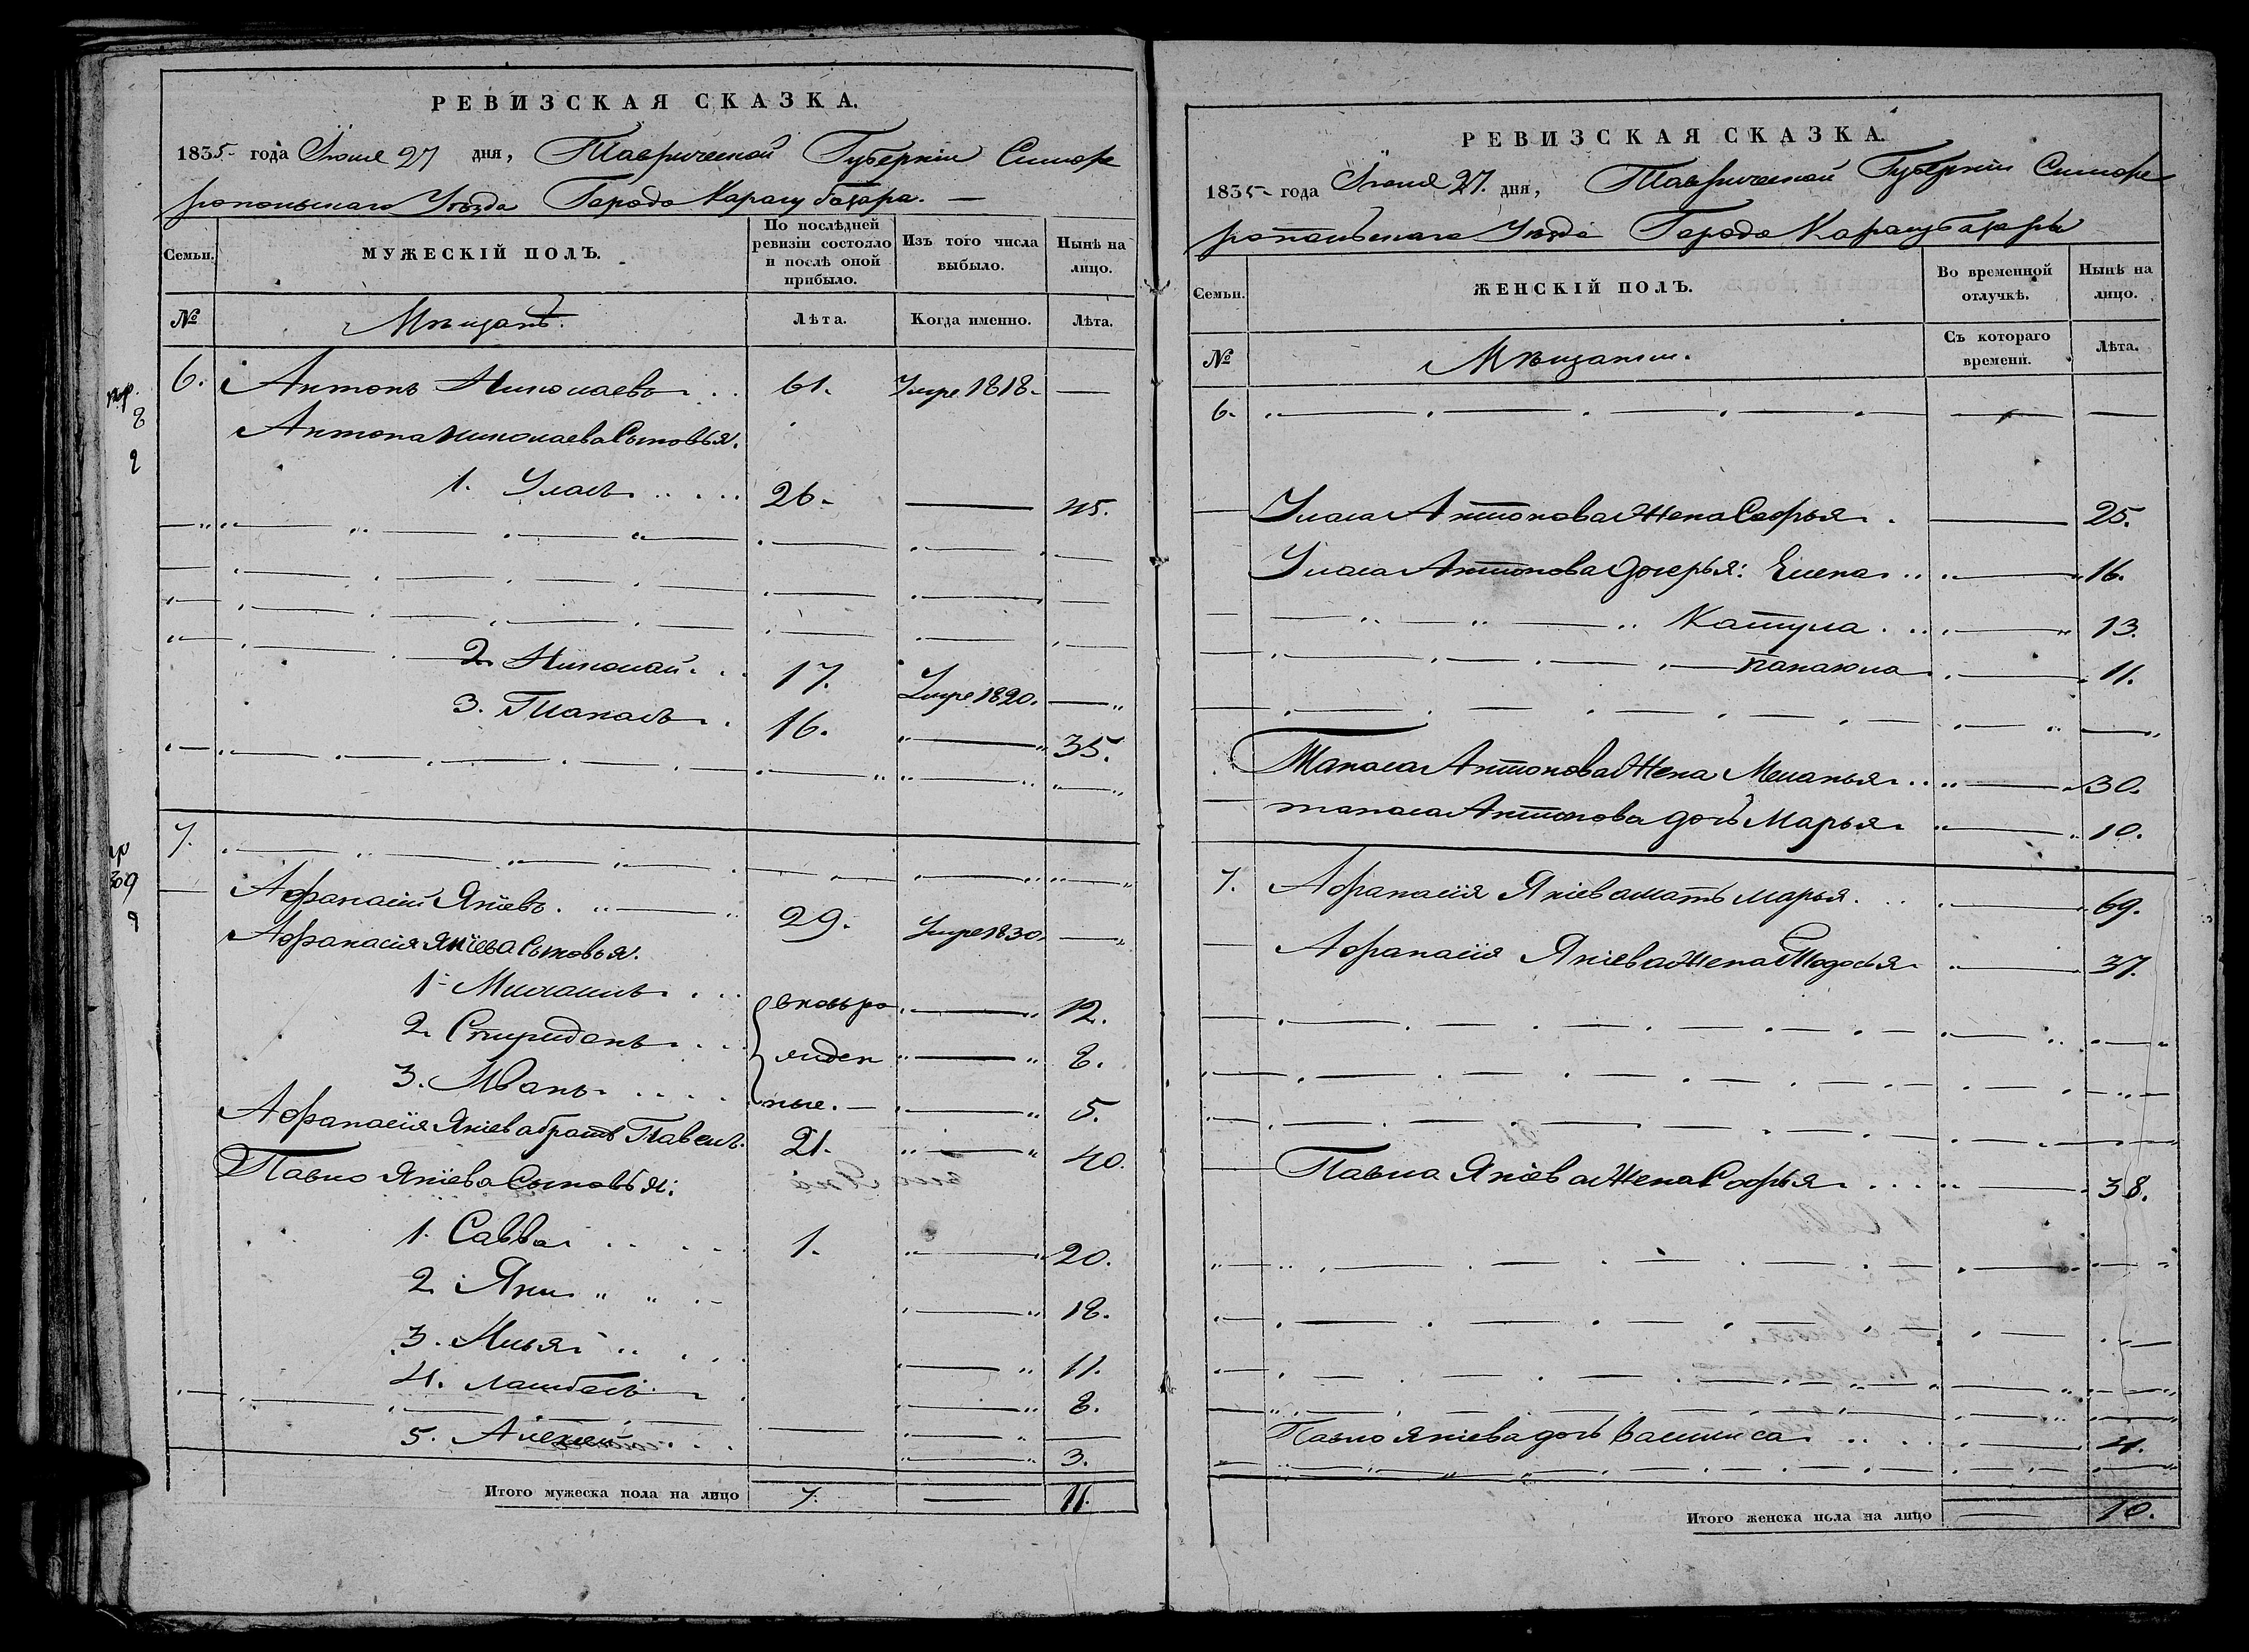 РЕВИЗСКАЯ СКАЗКА.
1835 года Іюня 27 дня, Таврической Губерніи Симфе
ропольскаго Уѣзда Города Карасубазара.
Семьи.
МУЖЕСКІЙ ПОЛЪ.
По послѣдней ревизіи состояло и послѣ оной прибыло.
Изъ того числа выбыло.
Нынѣ на лицо.
№
Мѣщанъ.
Лѣта.
Когда именно.
Лѣта.
6. Антонъ Николаевъ 61. Умре 1818.
Антона Николаева Сыновья.
1. Уласъ 26. 45.
2. Николай 17. Умре 1820.
3. Танасъ 16. 35.
7.
Афанасій Яніевъ. 29. Умре 1830.
Афанасія Яніева Сыновья.
1. Михаилъ вновь ро 12.
2. Спиридонъ жден 8.
3. Иванъ ные. 5.
Афанасія Яніева братъ Павелъ. 21. 40.
Павло Яніева Сыновья:
1. Савва 1. 20.
2. Яни 18.
3. Илья 11.
4. 8.
5. Алексей 3.
Итого мужеска пола на лицо 7. 11.
РЕВИЗСКАЯ СКАЗКА.
1835 года Іюня 27. дня, Таврической Губерніи Симфе
ропольскаго Уѣзда Города Карасубазары
Семьи.
ЖЕНСКІЙ ПОЛЪ.
Во временной отлучкѣ.
Нынѣ на лицо.
№
Мѣщанки.
Съ котораго времени.
Лѣта.
6.
Уласа Антонова Жена Софья 25.
Уласа Антонова дочерья: Елена 16.
Катула 13.
панаюла 11.
Танаса Антонова Жена Меланья 30.
танаса Антонова дочь Марья 10.
7. Афанасія Яніева мать марья. 69.
Афанасія Яніева Жена Тодосья 37.
Павла Яніева Жена Софья 38.
Павло Яніева дочь Васили са 4.
Итого женска пола на лицо 10.